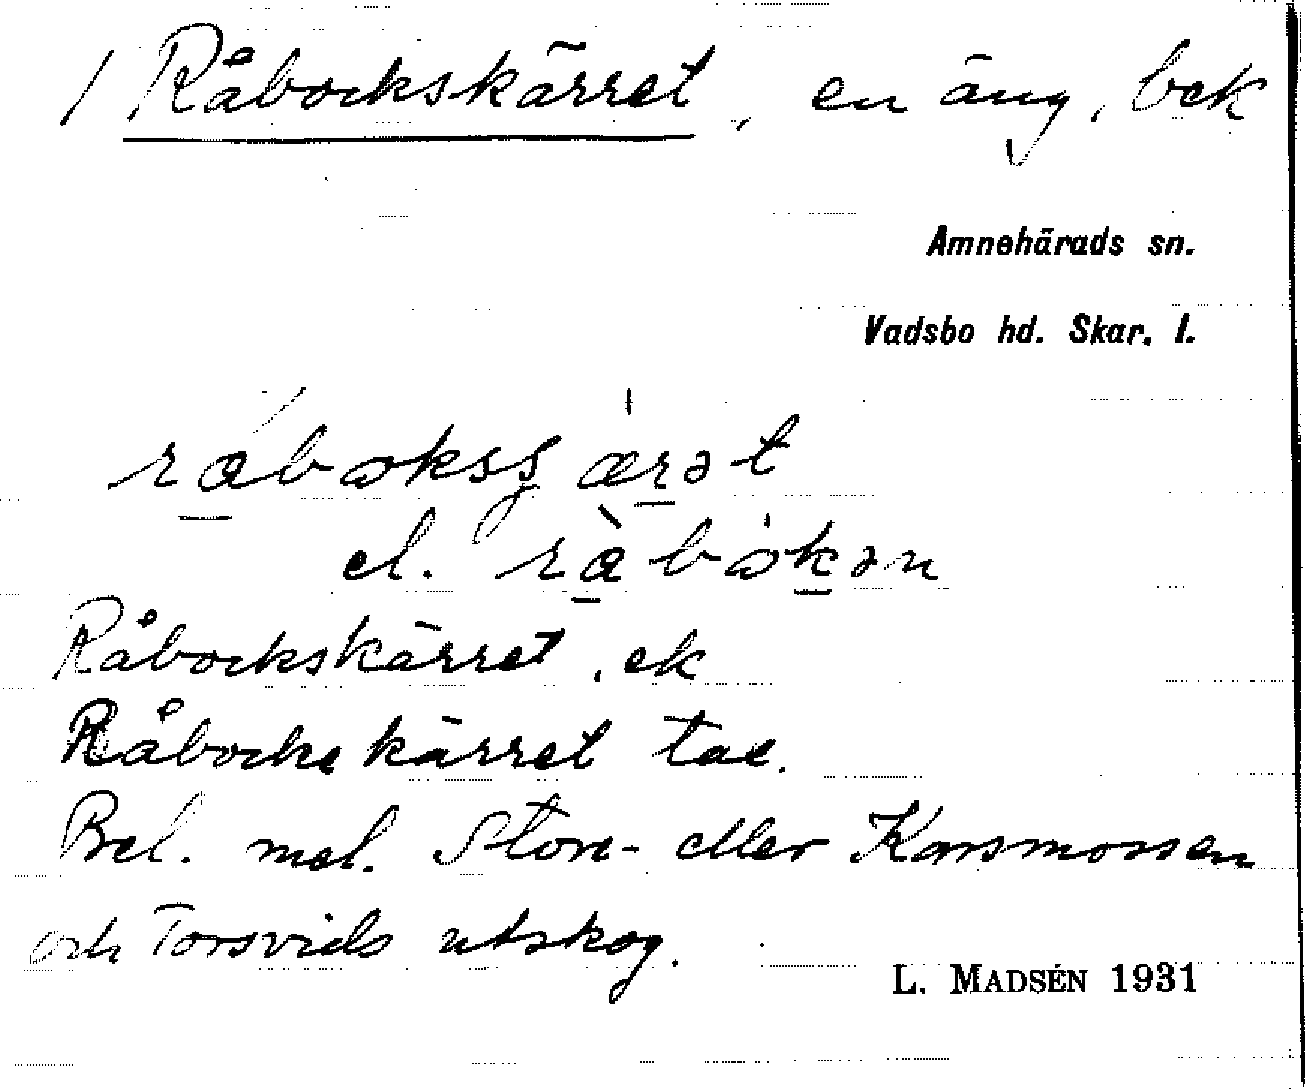 / Råbockskärret, en äng, bek
Amnehärads sn.
Vadsbo hd. Skar. l.
råbɷksʂærət
el. råbɷkən
Råbockskärret, ek
Råbockskärret tae.
Bel. mel. Stor- eller Korsmossen
och Torsvids utskog.
L. MADSÉN 1931